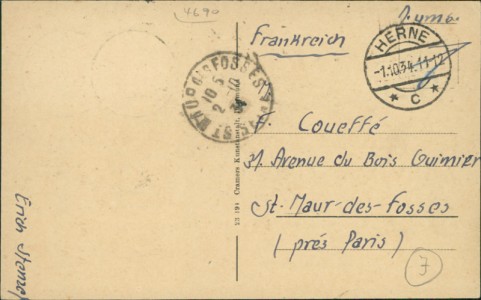 4690
Frankreich
HERNE
-1.10.34.11-12
* C *
ST MAUR DES FOSSES
10 5
2 10
F. Coueffé
31 Avenue du Bois Guimier
St-Maur-des-Fosses
(prés Paris)
7
Cramers Kunstanstalt,
Erich